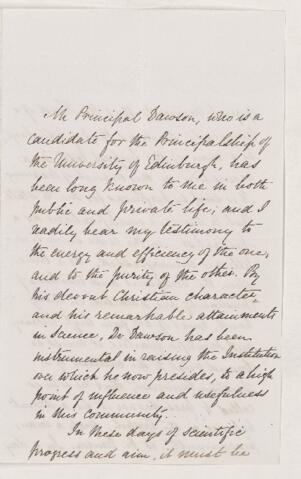 Mr Principal Dawson, who is a
candidate for the Principalship of
the University of Edinburgh, has
been long known to me in both
public and private life; and I
readily bear my testimony to
the energy and efficiency of the one,
and to the purity of the other. By
his devout Christian character
and his remarkable attainments
in science, Dr Dawson has been
instrumental in raising the Institution
over which he now presides, to a high
point of influence and usefulness
in this community.
In these days of scientific
progress and aim, it must be